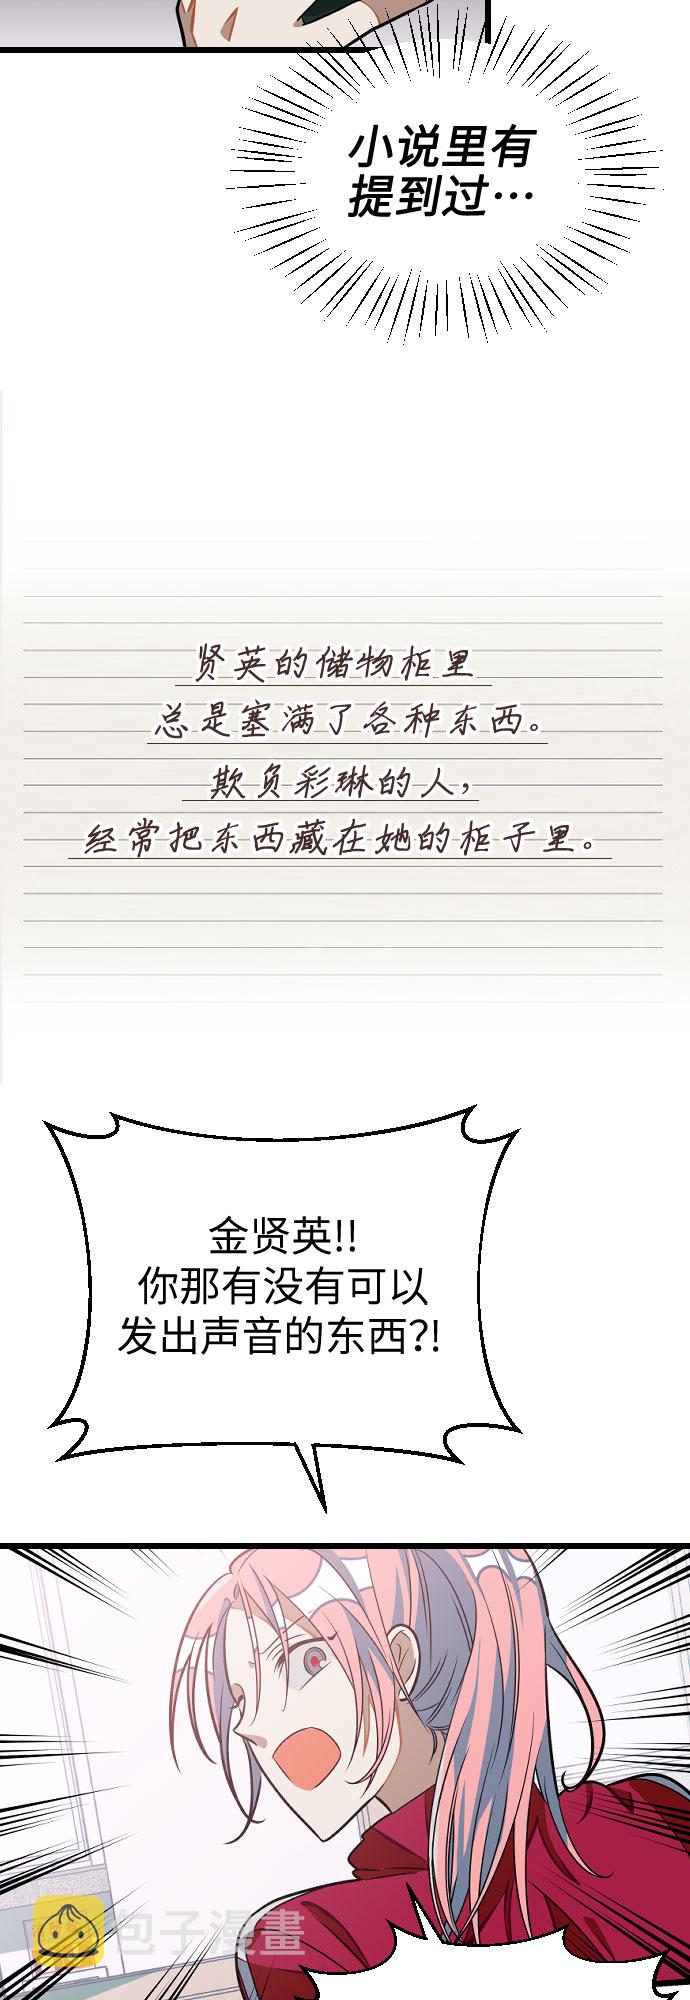 小说里有
提到过…
贤英的储物柜里
总是塞满了各种东西。
欺负彩琳的人，
经常把东西藏在她的柜子里。
金贤英!!
你那有没有可以
发出声音的东西?!
包子漫畫